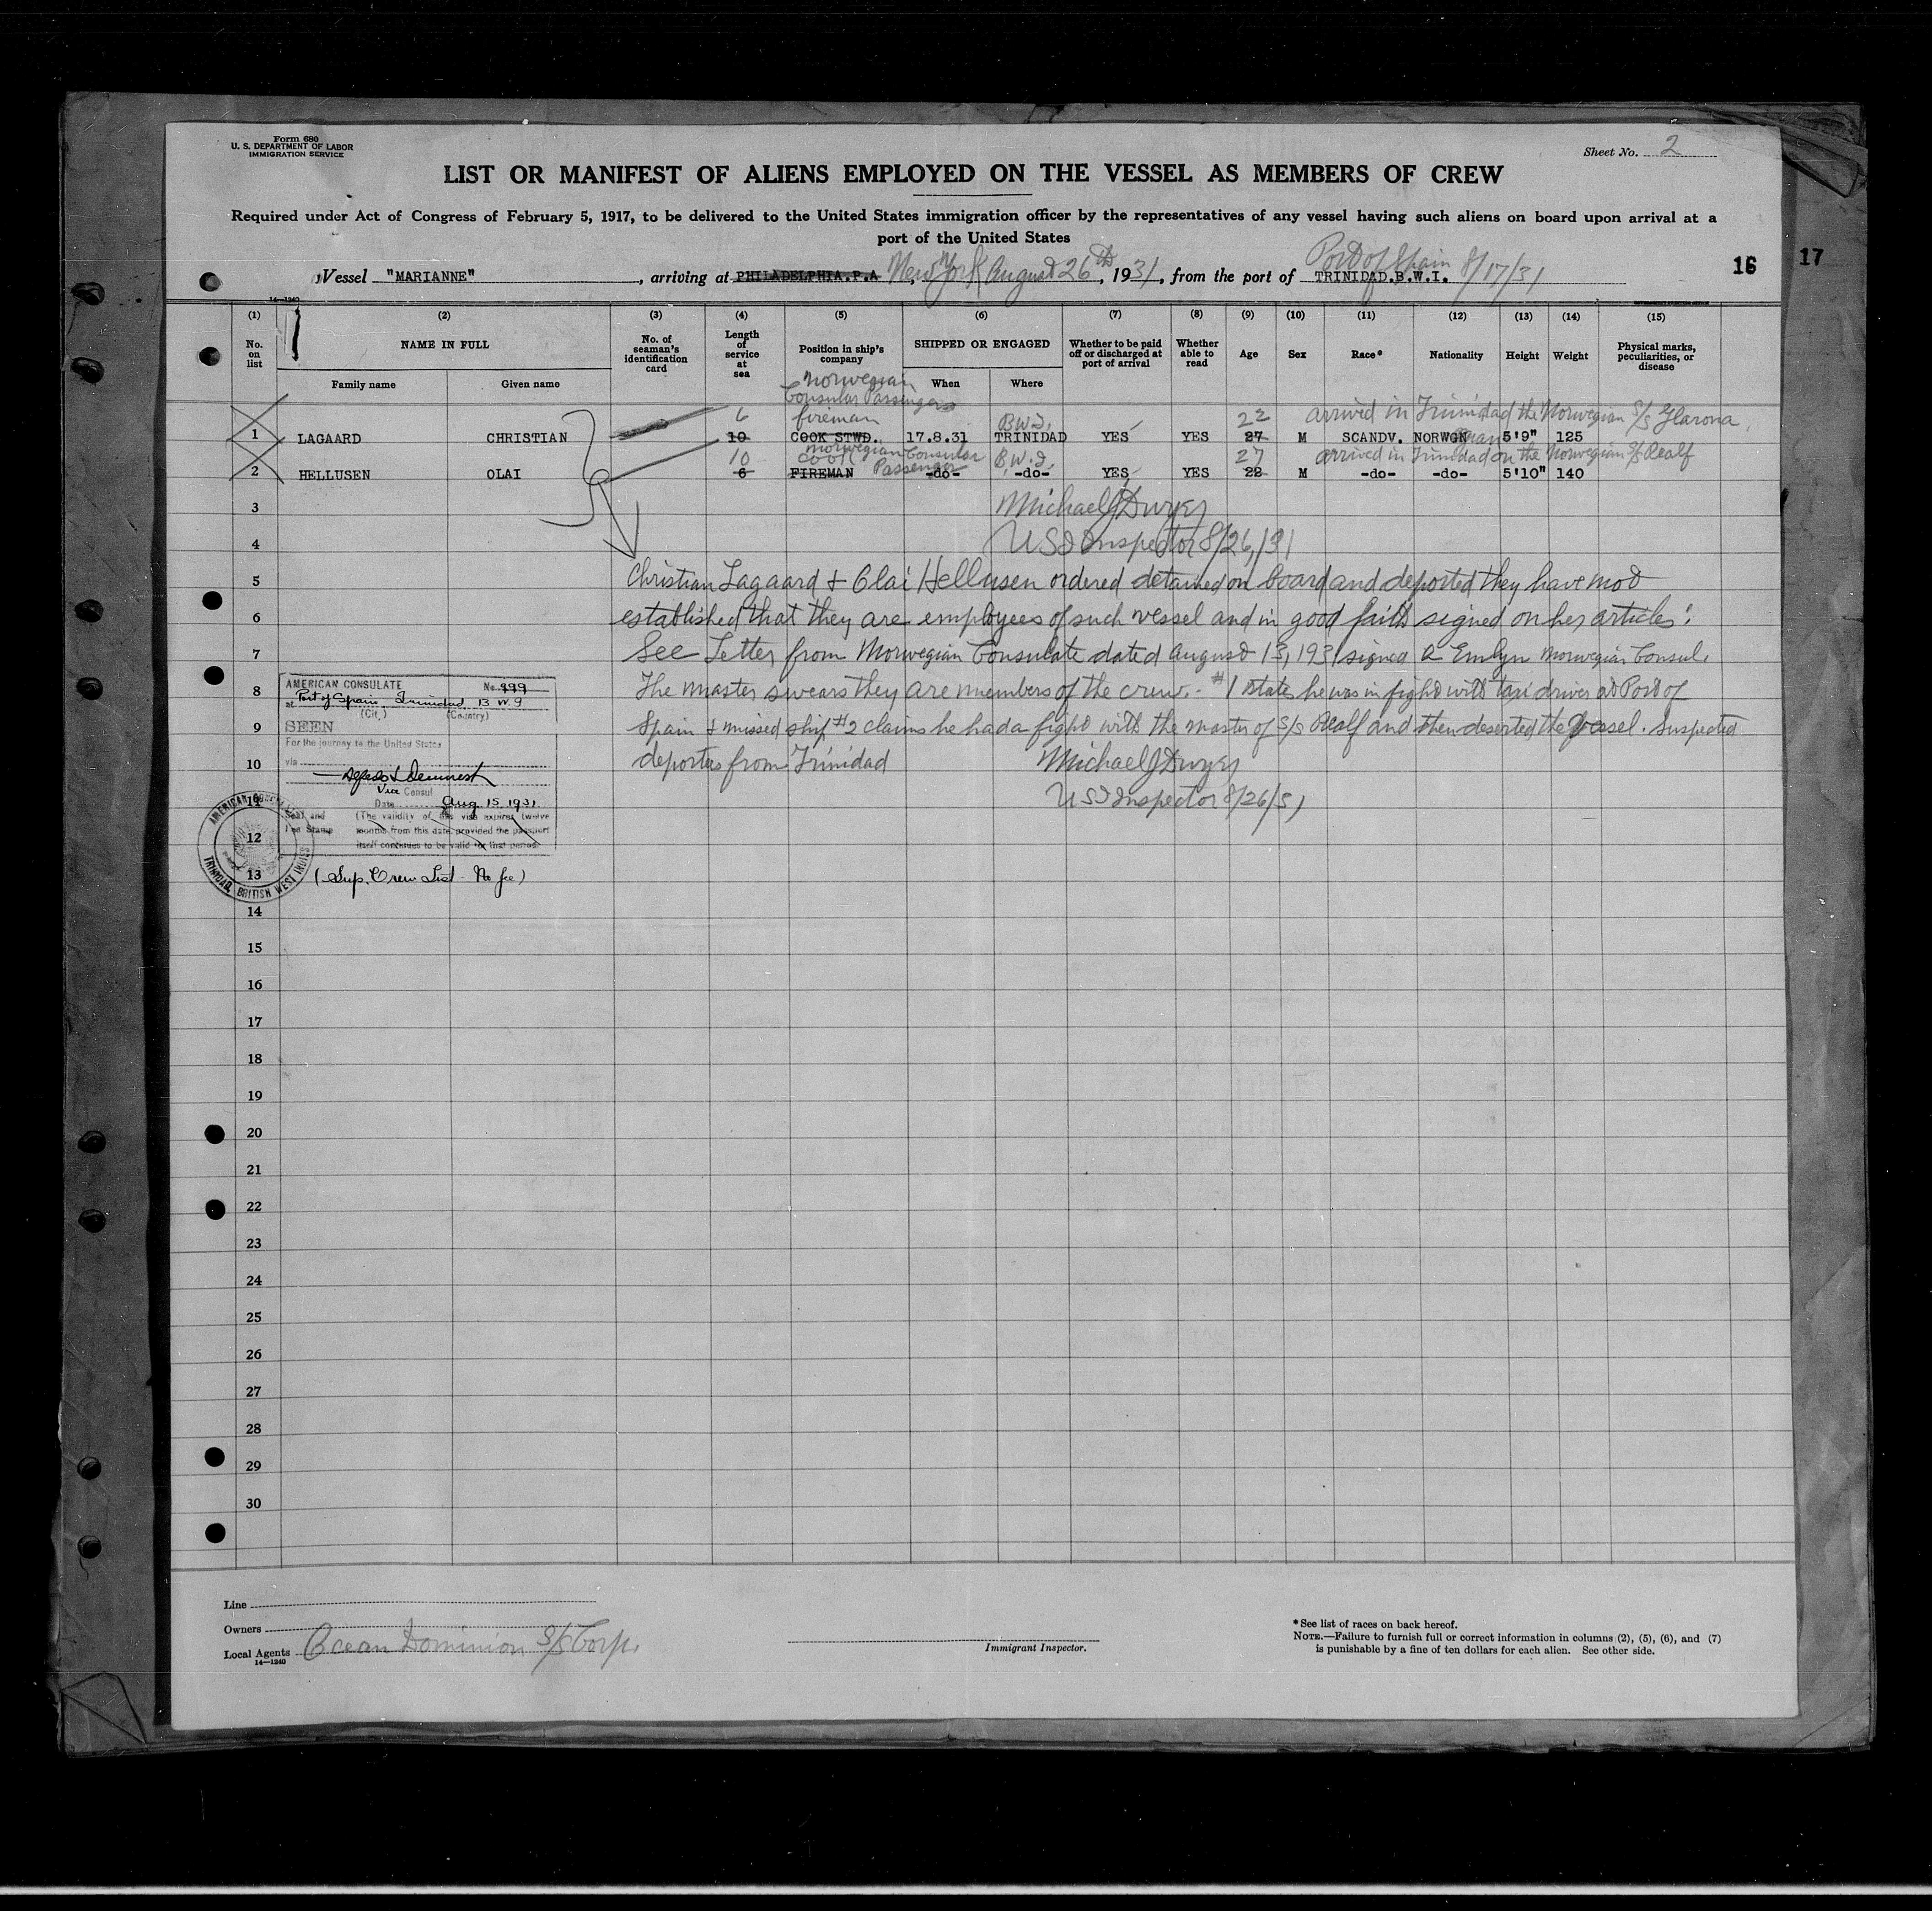 Form 680
U. S. DEPARTMENT OF LABOR
IMMIGRATION SERVICE
Sheet No. 2
LIST OR MANIFEST OF ALIENS EMPLOYED ON THE VESSEL AS MEMBERS OF CREW
Required under Act of Congress of February 5, 1917, to be delivered to the United States immigration officer by the representatives of any vessel having such aliens on board upon arrival at a
port of the United States
Port of Spain 8/17/31
Vessel "MARIANNE", arriving at PHILADELPHIA.P.A New York, August 26th, 1931, from the port of TRINIDAD.B.W.I.
16 17
14—1240
(1) (2) (3) (4) (5) (6) (7) (8) (9) (10) (11) (12) (13) (14) (15)
No. on list NAME IN FULL No. of seaman's identification card Length of service at sea Position in ship's company SHIPPED OR ENGAGED Whether to be paid off or discharged at port of arrival Whether able to read Age Sex Race* Nationality Height Weight Physical marks, peculiarities, or disease
Family name Given name When Where
Norwegian
Consular Passengers
6 fireman B.W.I. 22 arrived in Trinidad the Norwegian S/S Glarona
1 LAGAARD CHRISTIAN 10 COOK STWD. 17.8.31 TRINIDAD YES YES 27 M SCANDV. NORWGN 5'9" 125
10 cook Norwegian Consular Passenger B.W.I. 27 arrived in Trinidad on the Norwegian S/S Realf
2 HELLUSEN OLAI 6 FIREMAN -do- -do- YES YES 22 M -do- -do- 5'10" 140
3 Michael J Dwyer
4 U S I Inspector 8/26/31
5 Christian Lagaard & Olai Hellusen ordered detained on board and deported they have not
6 established that they are employees of such vessel and in good faith signed on her articles:
7 See Letter from Norwegian Consulate dated August 13, 1931 signed A Emlyn Norwegian Consul.
8 The master swears they are members of the crew. #1 states he was in fight with taxi driver at Port of
9 Spain & missed ship #2 claims he had a fight with the master of S/S Realf and then deserted the vessel. Suspected
10 deportees from Trinidad Michael J Dwyer
U S I Inspector 8/26/31
AMERICAN CONSULATE No. 999
at Port of Spain, Trinidad B W I
(City) (Country)
SEEN
For the journey to the United States
via
Vice Consul
Date Aug 15, 1931
Seal and Fee Stamp
(The validity of this visa expires twelve
months from this date, provided the passport
itself continues to be valid for that period.
AMERICAN CONSULATE
TRINIDAD, BRITISH WEST INDIES
(Sup. Crew List - No fee)
11
12
13
14
15
16
17
18
19
20
21
22
23
24
25
26
27
28
29
30
Line
Owners
Local Agents Ocean Dominion S/S Corp.
14—1240
Immigrant Inspector.
*See list of races on back hereof.
NOTE.—Failure to furnish full or correct information in columns (2), (5), (6), and (7)
is punishable by a fine of ten dollars for each alien. See other side.